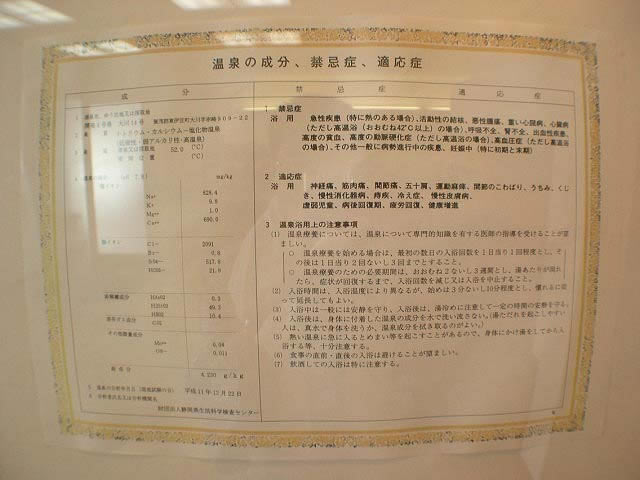 温泉の成分、禁忌症、適応症
成 分
禁 忌 症 適 応 症
賀茂郡東伊豆町大川字赤崎909-22
ナトリウム・カルシウム-塩化物温泉
(低張性・弱アルカリ性・高温泉)
52.0 ℃
mg/kg
陽イオン
Na+ 828.4
K+ 9.8
Mg++ 1.0
Ca++ 690.0
陰イオン
Cl- 2091
Br- 0.8
517.8
HCO3- 21.9
非解離成分
49.3
溶存ガス成分 10.4
その他微量成分
0.04
0.011
総成分 4.230 g/kg
平成11年12月22日
財団法人静岡県生活科学検査センター
1 禁忌症
浴 用 急性疾患(特に熱のある場合)、活動性の結核、悪性腫瘍、重い心臓病、心臓病
(ただし高温浴(おおむね42℃以上)の場合)、呼吸不全、腎不全、出血性疾患、
高度の貧血、高度の動脈硬化症(ただし高温浴の場合)、高血圧症(ただし高温浴
の場合)、その他一般に病勢進行中の疾患、妊娠中(特に初期と末期)
2 適応症
浴 用 神経痛、筋肉痛、関節痛、五十肩、運動麻痺、関節のこわばり、うちみ、くじ
き、慢性消化器病、痔疾、冷え症、慢性皮膚病、
虚弱児童、病後回復期、疲労回復、健康増進
3 温泉浴用上の注意事項
(1) 温泉療養については、温泉について専門的知識を有する医師の指導を受けることが望
ましい。
○ 温泉療養を始める場合は、最初の数日の入浴回数を1日当り1回程度とし、そ
の後は1日当り2回ないし3回までとすること。
○ 温泉療養のための必要期間は、おおむね2ないし3週間とし、湯あたりが現れ
たら、症状が回復するまで、入浴回数を減じ又は入浴を中止すること。
(2) 入浴時間は、入浴温度により異なるが、始めは3分ないし10分程度とし、慣れるに従
って延長してもよい。
(3) 入浴中は一般には安静を守り、入浴後は、湯冷めに注意して一定の時間の安静を守る。
(4) 入浴後は、身体に付着した温泉の成分を水で洗い流さない。(湯ただれを起こしやすい
人は、真水で身体を洗うか、温泉成分を拭き取るのがよい。)
(5) 熱い温泉に急に入るとめまい等を起こすことがあるので、身体にかけ湯をしてから入
浴する等、十分注意する。
(6) 食事の直前・直後の入浴は避けることが望ましい。
(7) 飲酒しての入浴は特に注意する。